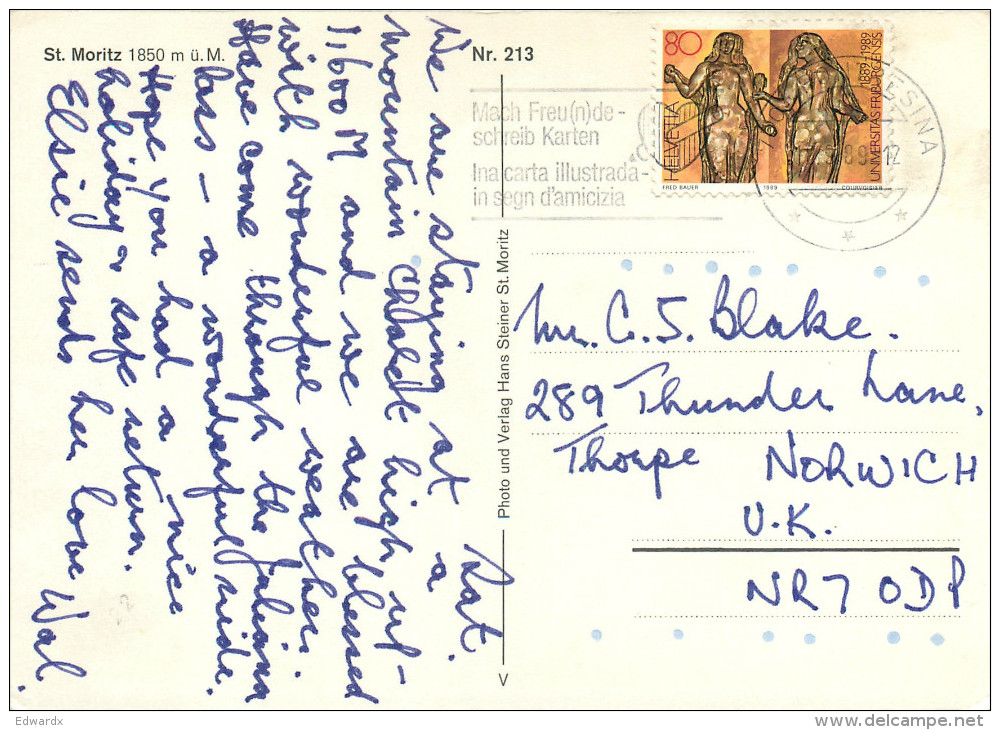 St. Moritz 1850 m ü. M.
Nr. 213
Mach Freu(n)de -
schreib Karten
Ina carta illustrada -
in segn d'amicizia
80
HELVETIA
1889-1989
UNIVERSITAS FRIBURGENSIS
FRED BAUER
1989
COURVOISIER
Photo und Verlag Hans Steiner St. Moritz
V
Sat.
We are staying at a
mountain Chalet high up
1,600 M and we are blessed
with wonderful weather.
Have come through the Juliana
Pass - a wonderful ride.
Hope you had a nice
holiday & safe return.
Elsie sends her love Wal.
Mr. C. J. Blake.
289 Thunder Lane,
Thorpe NORWICH
U.K.
NR7 0DP
Edwardx
delcampe.net